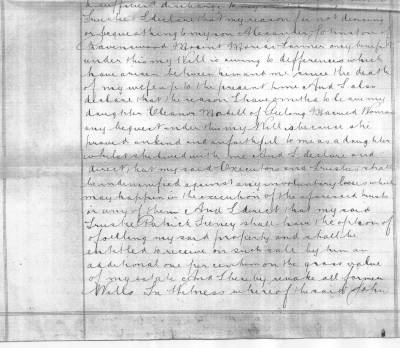 a sufficient discharge to my
Trustee I declare that my reason for not devising
or bequeathing to my son Alexander Johnston of
Ravenswood Mount Moriac Farmer any benefit
under this my Will is owing to differences which
have arisen between him and me since the death
of my wife up to the present time And I also
declare that the reason I have omitted to leave my
daughter Eleanor of Geelong Married Woman
any bequest under this my Will is because she
proved unkind and unfaithful to me as a daughter
whilst she lived with me And I declare and
direct that my said Executors and Trustees shall
be indemnified against any involuntary losses which
may happen in the execution of the aforesaid trusts
or any of them And I direct that my said
Trustee Patrick shall have the option of
of selling my said property and shall be
entitled to receive on such sale by him an
additional one per centum on the gross value
of my estate And I hereby revoke all former
Wills In Witness whereof I the said John